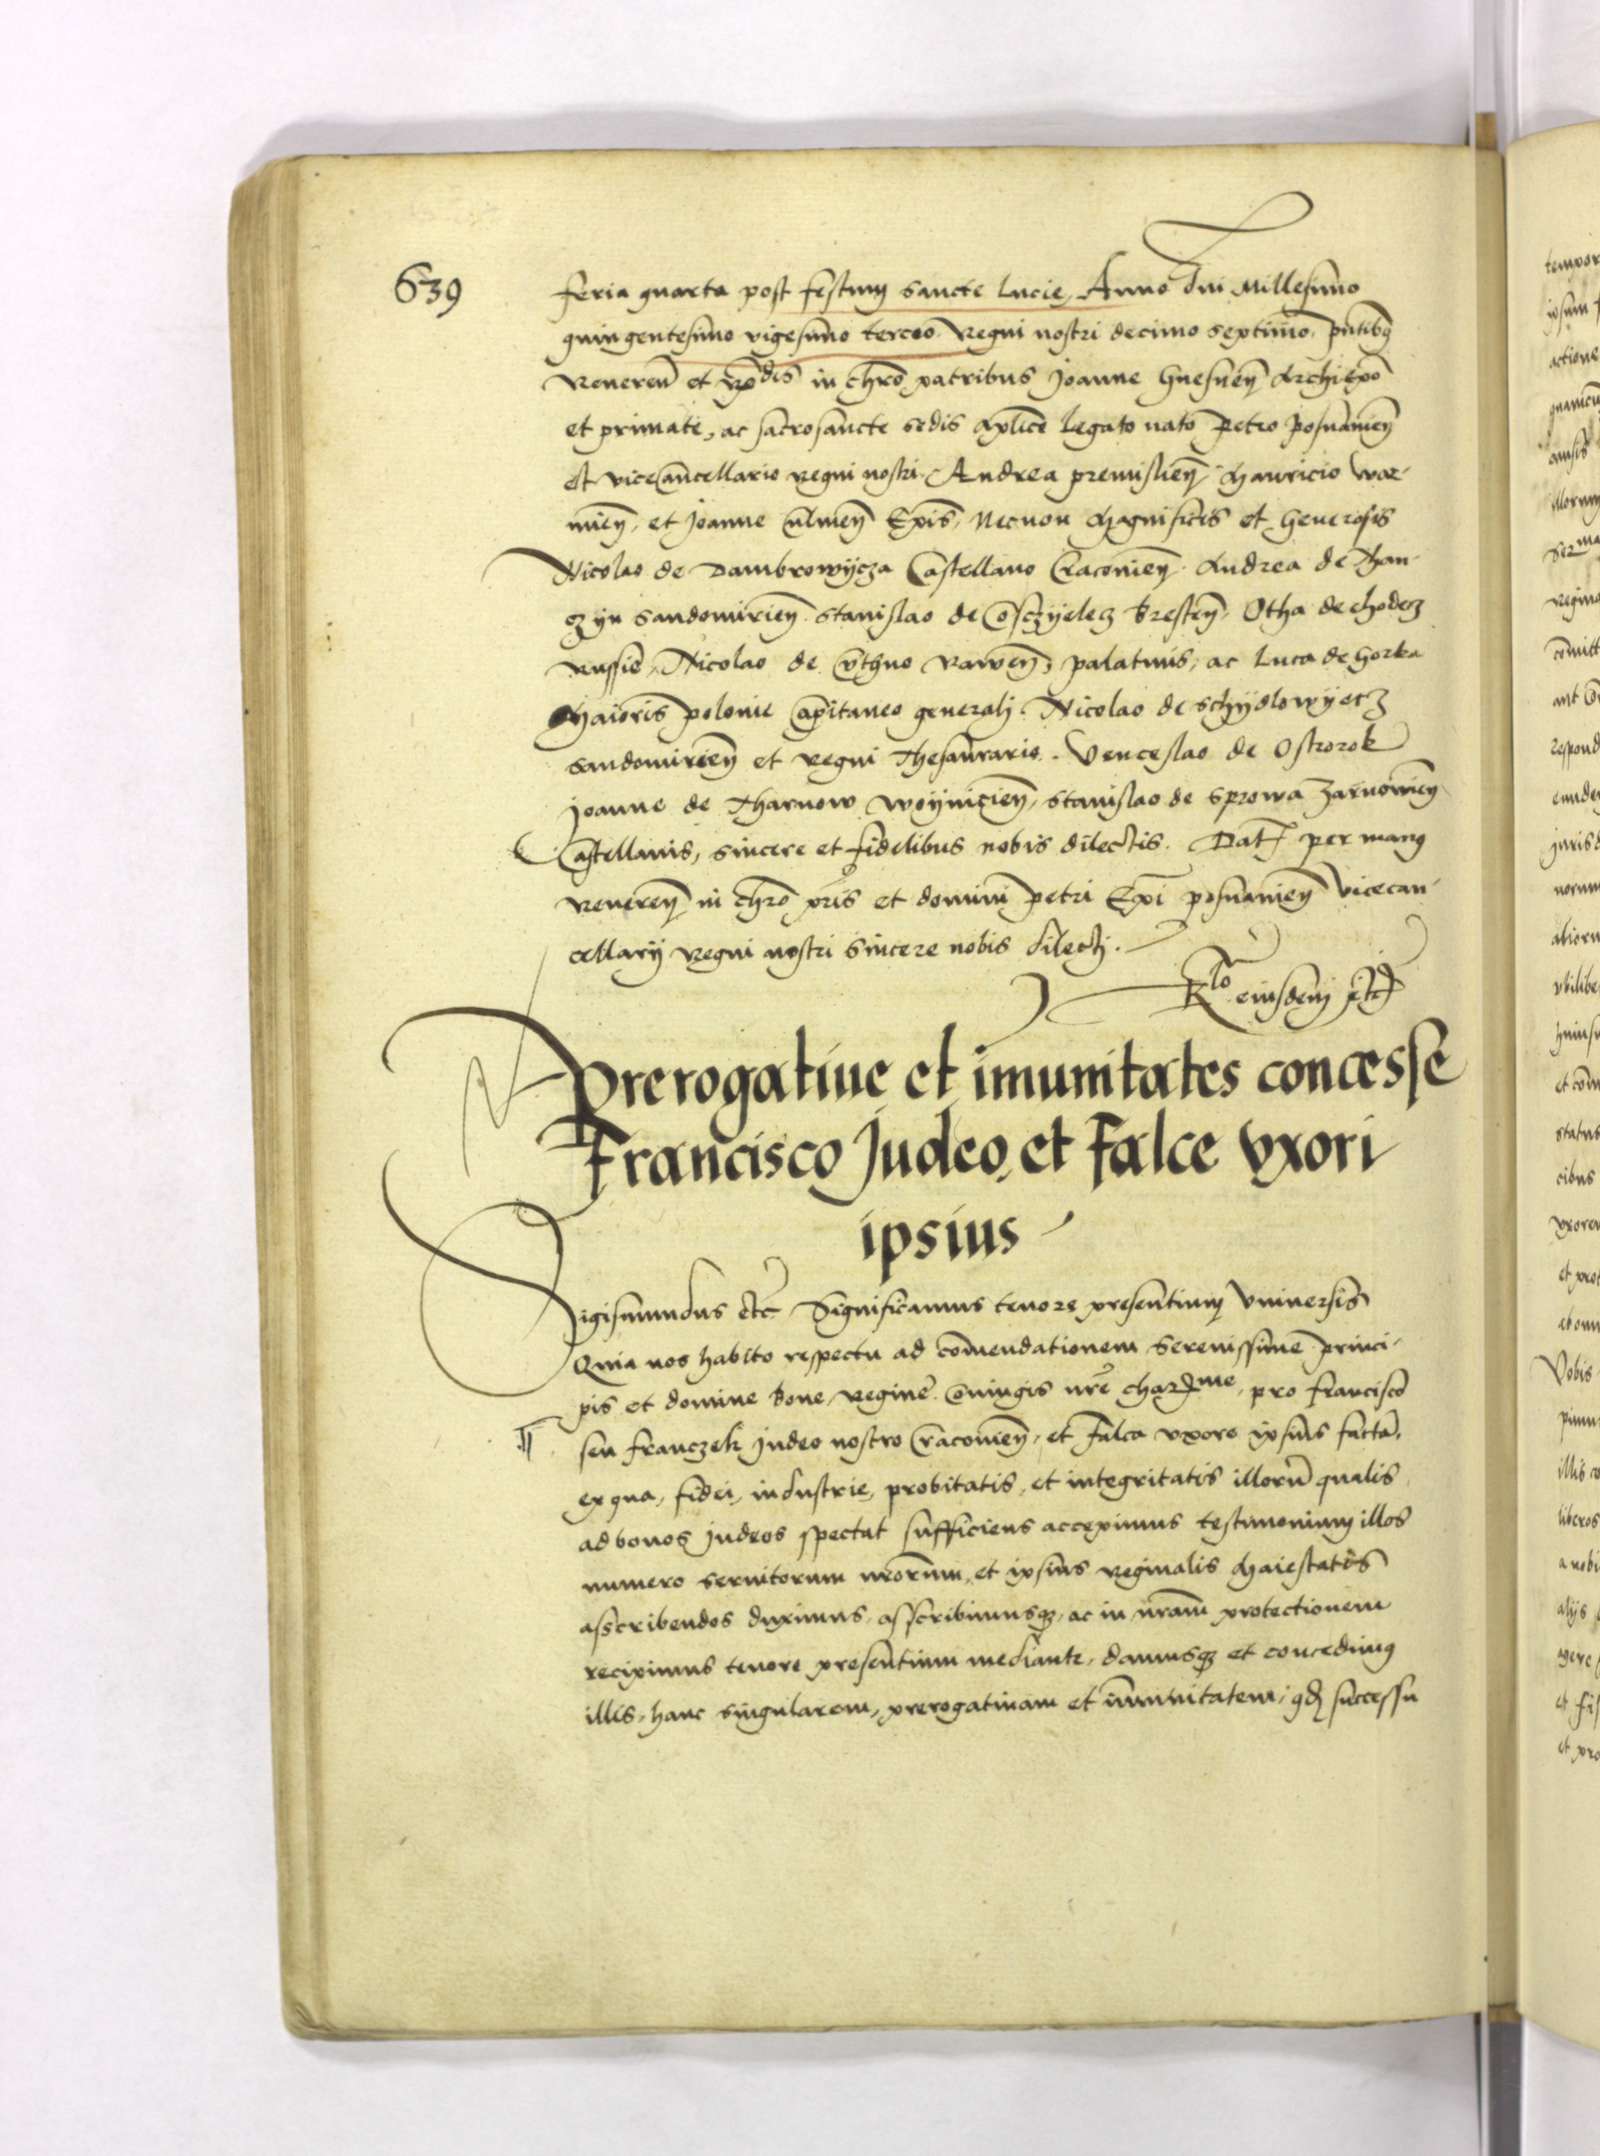 639
feria quarta post festum sancte Lucie, Anno dni Millesimo
quingentesimo vigesimo tercio Regni nostri decimo septimo, pntibus
Reveren et Rndis in chro patribus Joanne Gnesnen Archiepo
et primate, ac sacrosancte sedis aplice legato nato Petro Posnanien
et vicecancellario regni nostri. Andrea premislien, Mauricio War-
mien, et Joanne Culmen Epis, Necnon Magnificis et Generosis
Nicolao de Dambrowycza Castellano Cracovien. Andrea de Than-
czyn Sandomirien. Stanislao de Cosczyelecz Bresten, Otha de Chodecz
Russie, Nicolao de Cuthno Raven, palatinis, ac Luca de Gorka
Maioris polonie Capitaneo generali. Nicolao de Schydlowyecz
Sandomirien et Regni Thesaurario. Venceslao de Ostrorok
Joanne de Tharnow Woynicien, Stanislao de Sprowa Zarnowien
Castellanis, sincere et fidelibus nobis dilectis. Dat per manus
Reveren in chro pris et domini Petri Epi posnanien vicecan-
cellarij Regni nostri sincere nobis dilecti.
Rlo eiusdem etc
Prerogative et imunitates concesse
Francisco Judeo, et Falce vxori
ipsius
Sigismundus etc Significamus tenore presentium Vniversis
Quia nos habito respectu ad comendationem Serenissime princi-
pis et domine Bone, Regine Coniugis nre charme, pro Francisco
seu Franczek Judeo nostro Cracovien, et Falca vxore ipsius facta,
ex qua, fidei, industrie, probitatis, et integritatis illoru qualis
ad bonos Judeos spectat sufficiens accepimus testimonium illos
numero servitorum nrorum, et ipsius Reginalis Maiestatis
asscribendos duximus, asscribimusq, ac in nram protectionem
recipimus tenore presentium mediante, damusq et concedimus
illis, hanc singularem, prerogativam et immunitatem, qd successu